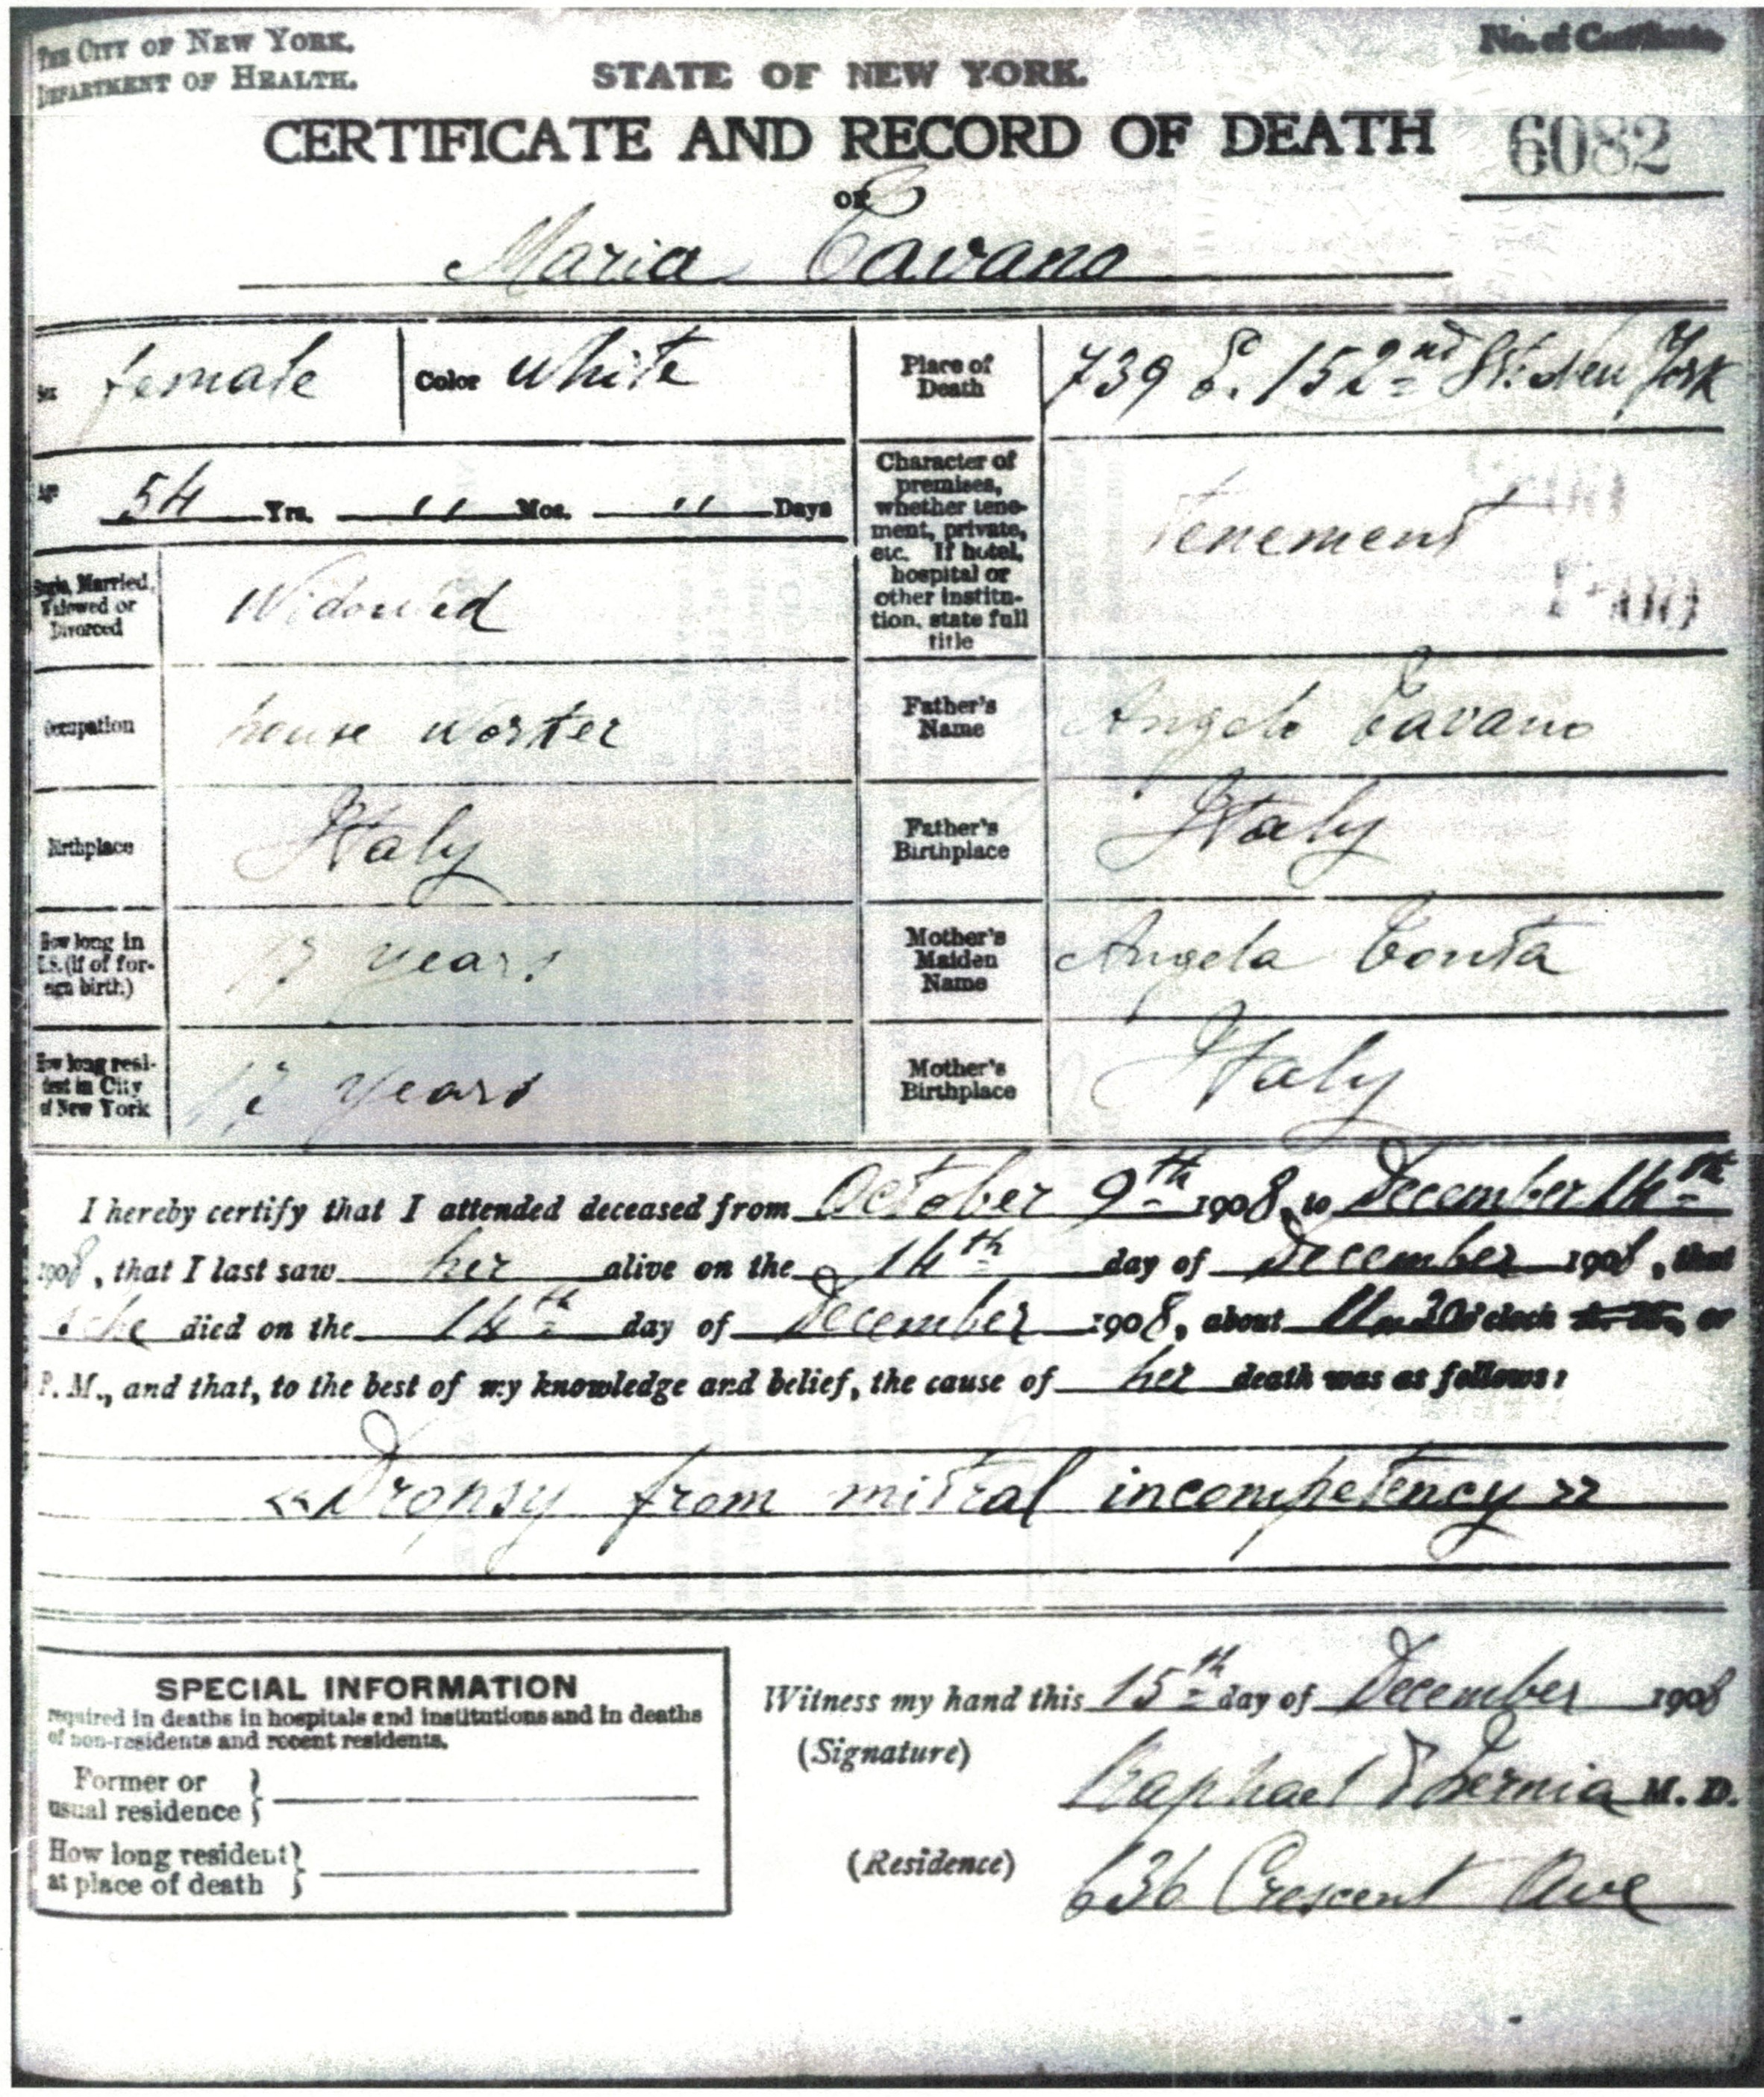 THE CITY OF NEW YORK.
DEPARTMENT OF HEALTH.
No. of Certificate
STATE OF NEW YORK.
CERTIFICATE AND RECORD OF DEATH
6082
OF
Maria Cavano
Sex female Color White
Place of Death 739 E. 152nd St. New York
Age 54 Yrs. " Mos. " Days
Character of premises, whether tenement, private, etc. If hotel, hospital or other institution, state full title
Tenement
Single, Married, Widowed or Divorced Widowed
Occupation house worker
Father's Name Angelo Cavano
Birthplace Italy
Father's Birthplace Italy
How long in U.S. (if of foreign birth.) years
Mother's Maiden Name Angela Conta
How long resident in City of New York years
Mother's Birthplace Italy
I hereby certify that I attended deceased from October 9th 1908, to December 14th
1908, that I last saw her alive on the 14th day of December 1908, that
she died on the 14th day of December 1908, about o'clock A. M., or
P. M., and that, to the best of my knowledge and belief, the cause of her death was as follows:
«Dropsy from mitral incompetency»
SPECIAL INFORMATION
required in deaths in hospitals and institutions and in deaths
of non-residents and recent residents.
Former or usual residence
How long resident at place of death
Witness my hand this 15th day of December 1908
(Signature) Raphael M. D.
(Residence) 636 Crescent Ave